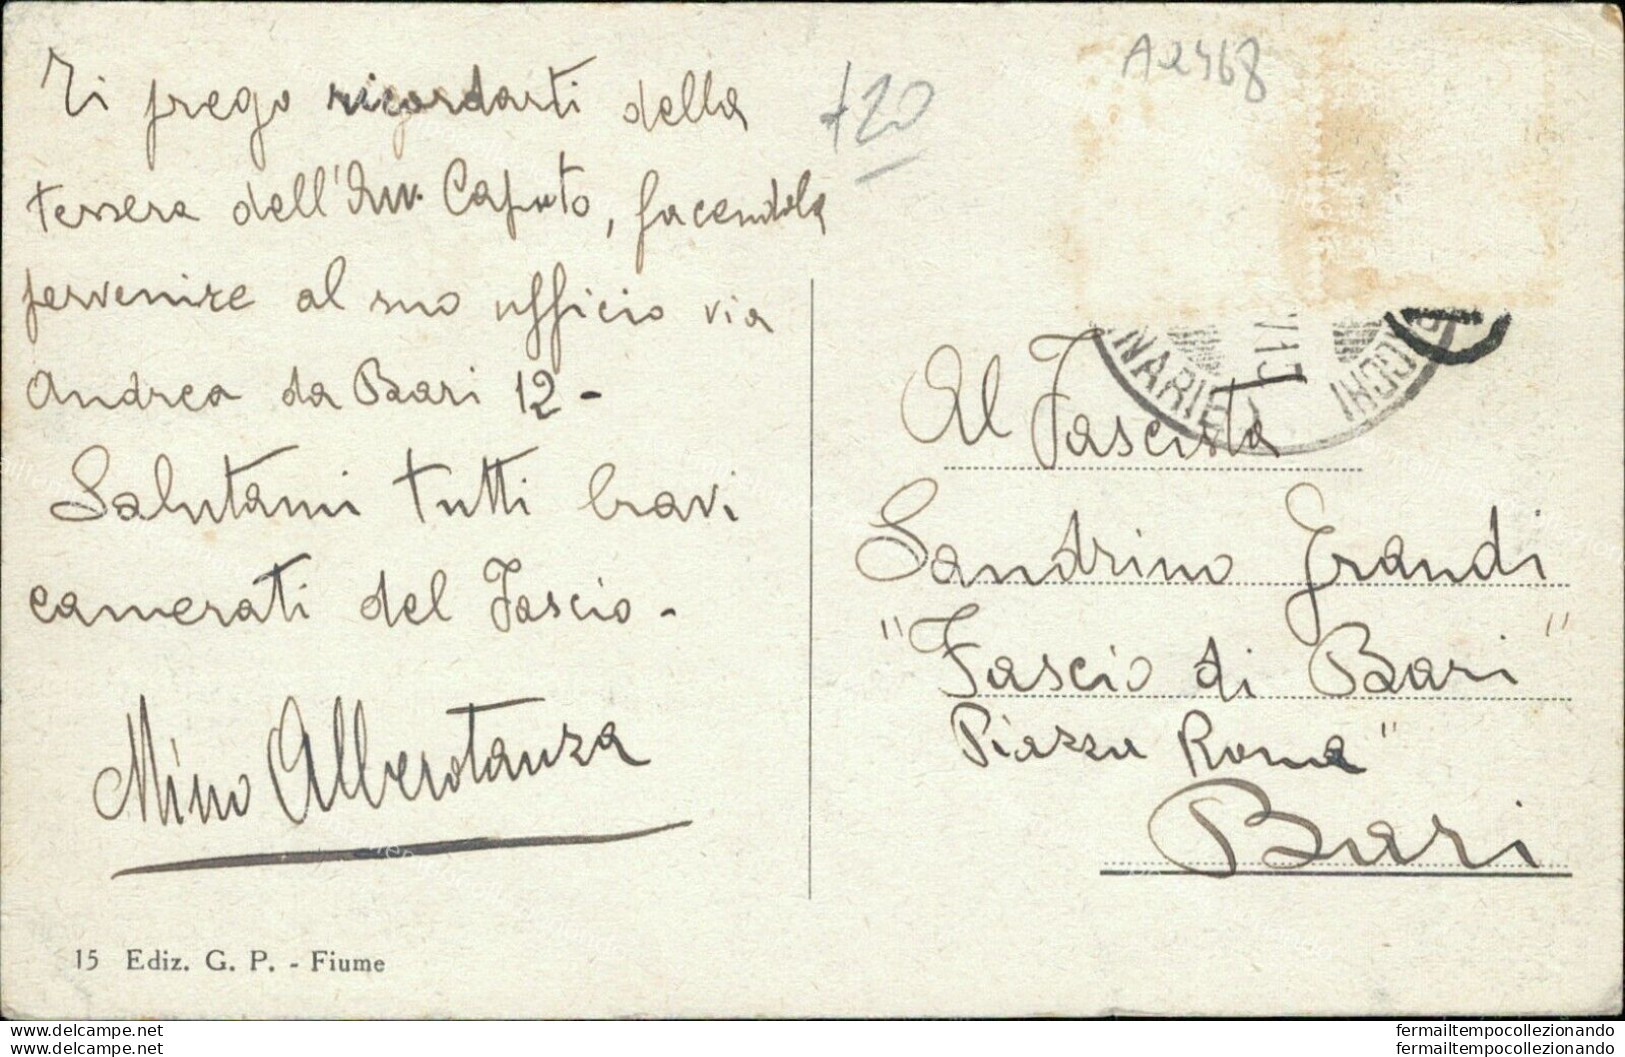 Ti prego ricordarti della
tessera dell'Avv. Caputo, facendola
pervenire al suo ufficio via
Andrea da Bari 12 -
Salutami tutti bravi
camerati del Fascio -
Mino Alberotanza
15 Ediz. G. P. - Fiume
A2468
+20
Al Fascista
Sandrino Grandi
"Fascio di Bari"
Piazza Roma"
Bari
www.delcampe.net
www.delcampe.net
fermailtempocollezionando
fermailtempocollezionando